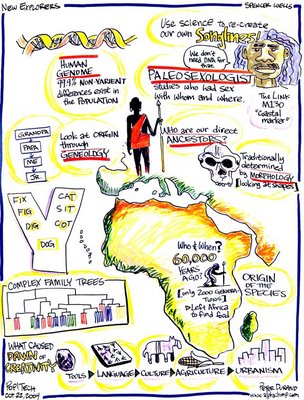 NEW EXPLORERS
SPENCER WELLS
Use SCIENCE to re-create
our own Songlines!
HUMAN
GENOME
99.9% NON-VARIENT
differences exist in
the POPULATION
We don't
need DNA for
this.
PALEOSEXOLOGIST
studies who had sex
with whom and where.
The LINK
M130
"coastal
marker"
GRANDPA
PAPA
ME
JR.
Look at ORIGIN
through
GENEOLOGY
Who are our direct
ANCESTORS?
Traditionally
determined
by MORPHOLOGY
looking at shapes
FIX
FIG
DIG
DOG
CAT
SIT
COT
Who & When?
60,000
YEARS
AGO!
[only 2000 GENERATIONS]
Left Africa
to find food
ORIGIN
OF THE
SPECIES
COMPLEX FAMILY TREES
WHAT CAUSED
DAWN OF
CREATIVITY
TOOLS
LANGUAGE
CULTURE
AGRICULTURE
URBANISM
POP!TECH
OCT 22, 2004
PETER DURAND